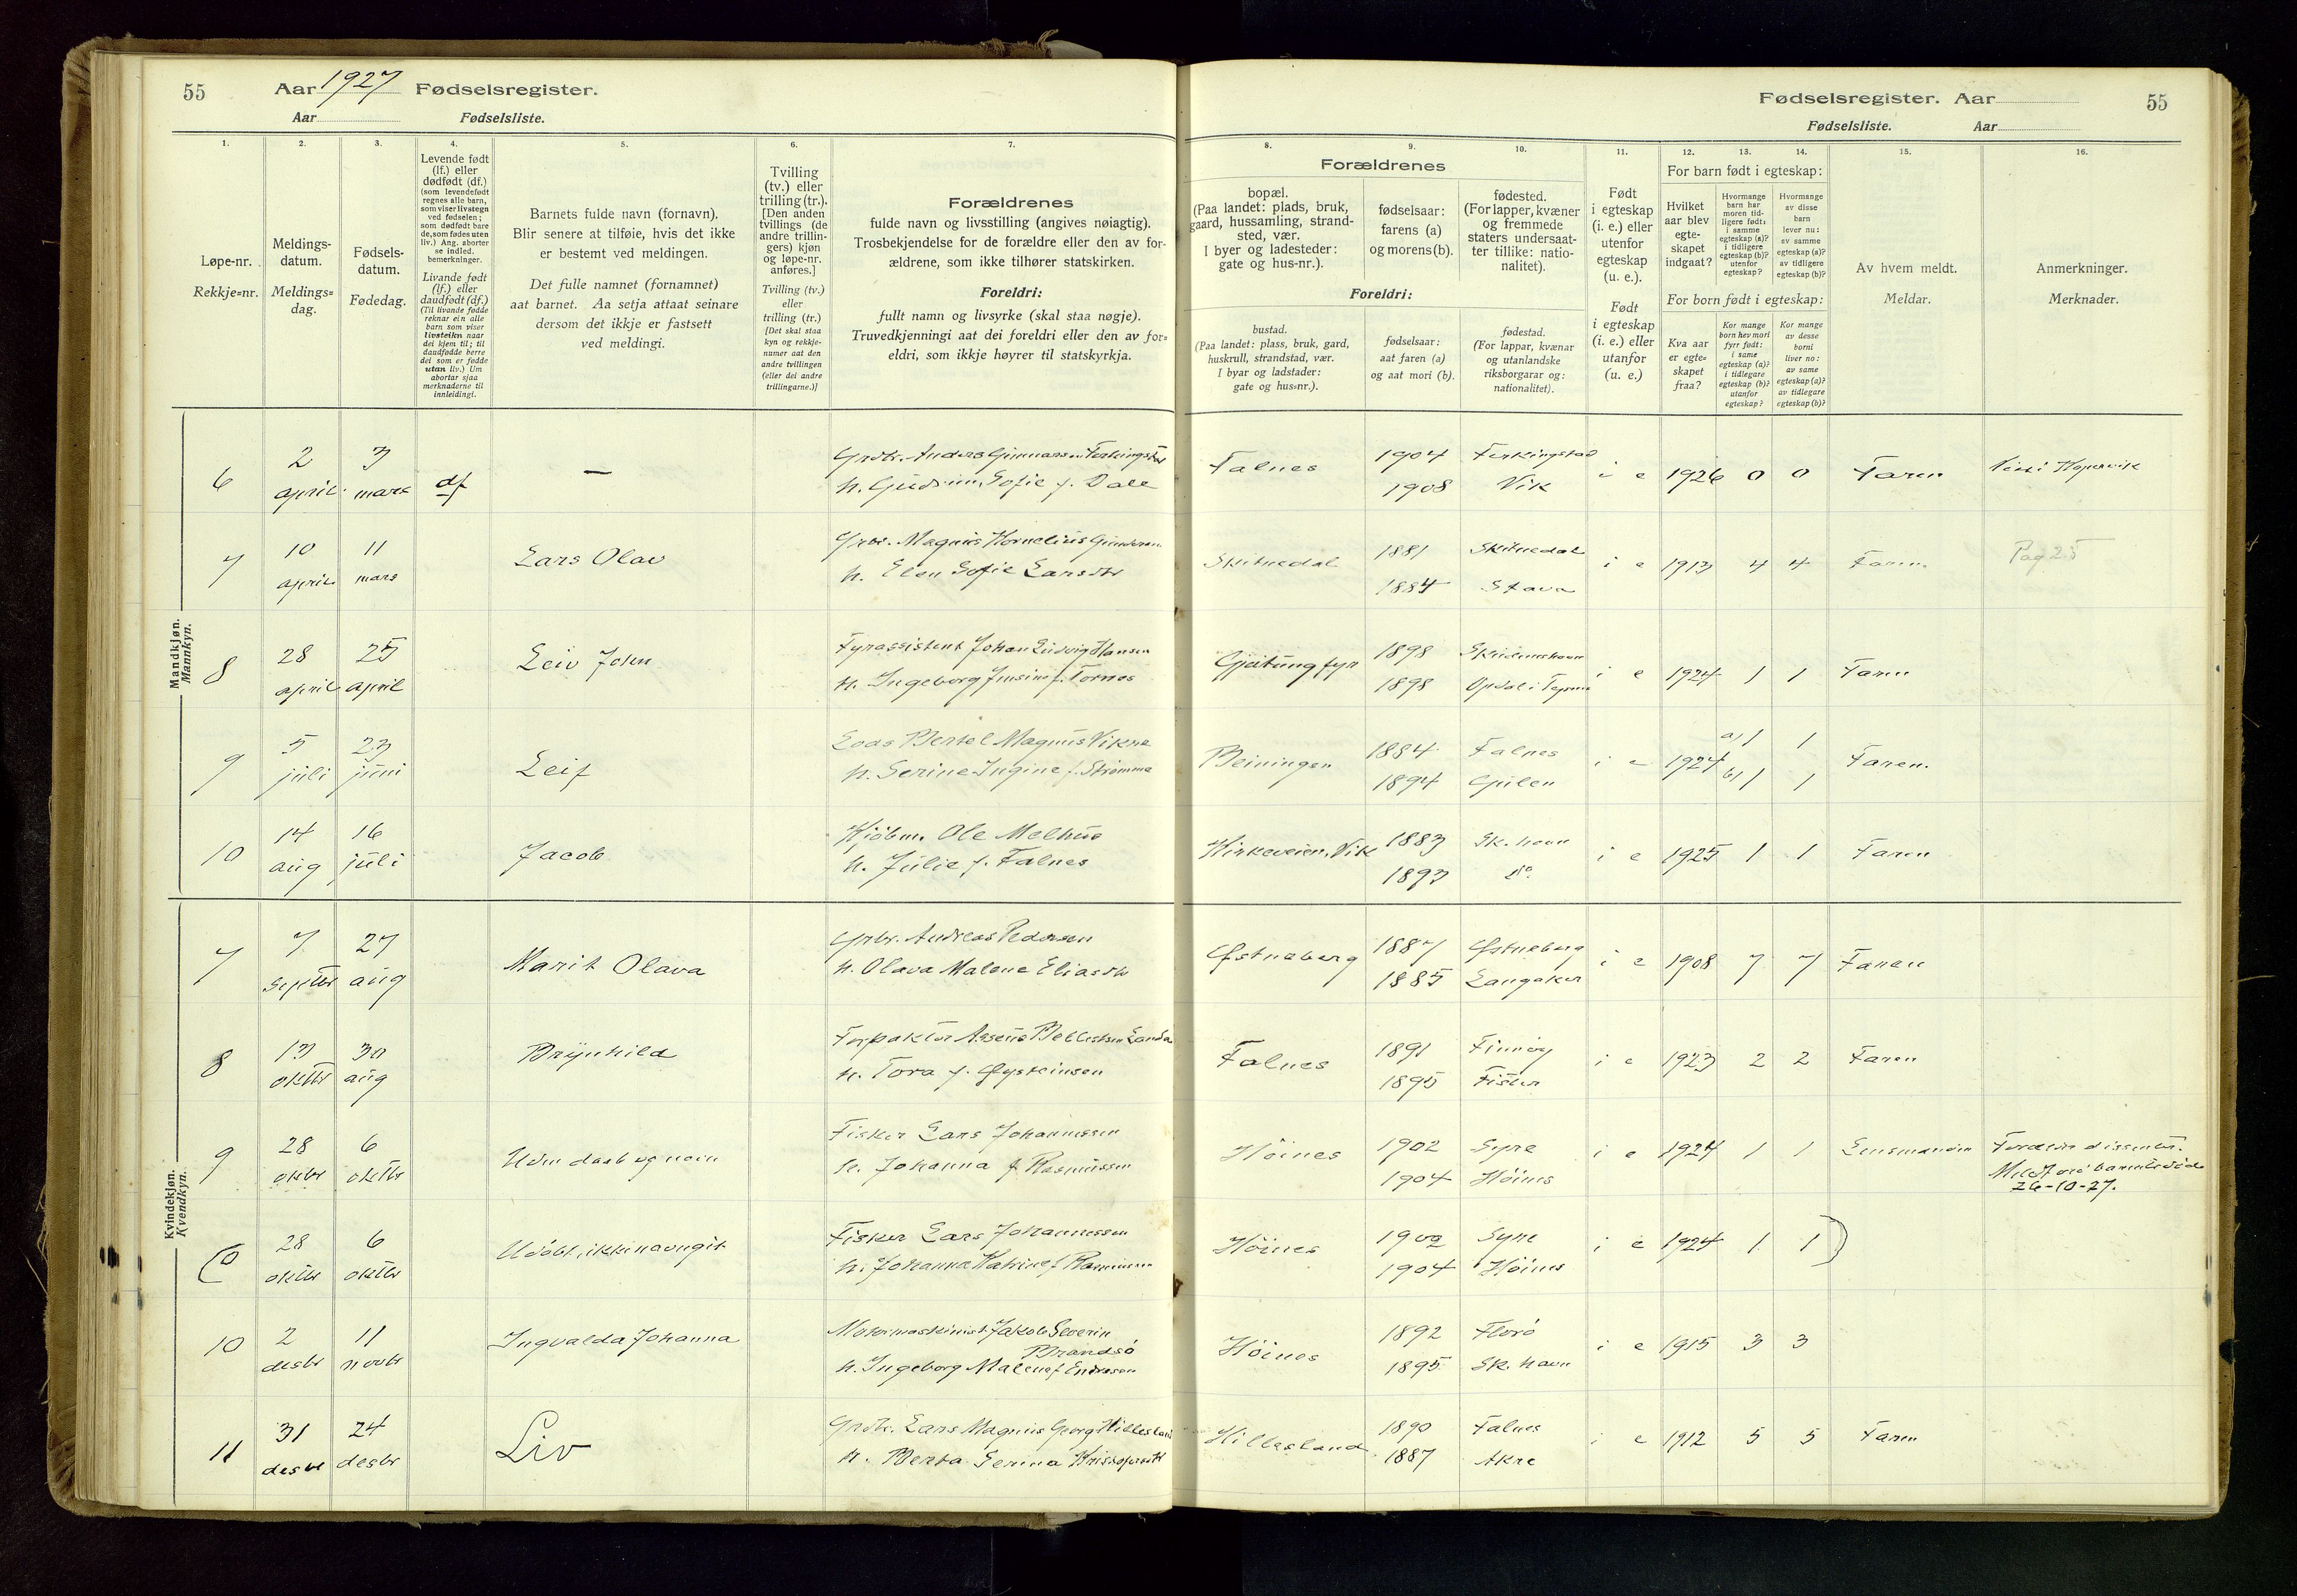 55 Aar 1927 Fødselsregister.
Aar Fødselsliste.
Fødselsregister. Aar 55
Fødselsliste. Aar
1. 2. 3. 4. 5. 6. 7. 8. 9. 10. 11. 12. 13. 14. 15. 16.
Løpe-nr.
Rekkje=nr.
Meldings-
datum.
Meldings=
dag.
Fødsels-
datum.
Fødedag.
Levende født
(lf.) eller
dødfødt (df.)
(som levendefødt
regnes alle barn,
som viser livstegn
ved fødselen;
som dødfødt bare
de, som fødes uten
liv.) Ang. aborter
se indled.
bemerkninger.
Livande født
(lf.) eller
daudfødt (df.)
(Til livande fødde
reknar ein alle
barn som viser
livsteikn naar
dei kjem til; til
daudfødde berre
dei som er fødde
utan liv.) Um
abortar sjaa
merknaderne til
innleidingi.
Barnets fulde navn (fornavn).
Blir senere at tilføie, hvis det ikke
er bestemt ved meldingen.
Det fulle namnet (fornamnet)
aat barnet. Aa setja attaat seinare
dersom det ikkje er fastsett
ved meldingi.
Tvilling
(tv.) eller
trilling (tr.).
[Den anden
tvillings (de
andre trillin-
gers) kjøn
og løpe-nr.
anføres.]
Tvilling (tv.)
eller
trilling (tr.)
[Det skal staa
kyn og rekkje-
numer aat den
andre tvillingen
(eller dei andre
trillingarne.)]
Forældrenes
fulde navn og livsstilling (angives nøiagtig).
Trosbekjendelse for de forældre eller den av for-
ældrene, som ikke tilhører statskirken.
Foreldri:
fullt namn og livsyrke (skal staa nøgje).
Truvedkjenningi aat dei foreldri eller den av for=
eldri, som ikkje høyrer til statskyrkja.
Forældrenes
bopæl.
(Paa landet: plads, bruk,
gaard, hussamling, strand-
sted, vær.
I byer og ladesteder:
gate og hus-nr.).
fødselsaar:
farens (a)
og morens (b).
fødested.
(For lapper, kvæner
og fremmede
staters undersaat-
ter tillike: natio-
nalitet).
Foreldri:
bustad.
(Paa landet: plass, bruk, gard,
huskrull, strandstad, vær.
I byar og ladstader:
gate og hus=nr.).
fødselsaar:
aat faren (a)
og aat mori (b).
fødestad.
(For lappar, kvænar
og utanlandske
riksborgarar og:
nationalitet).
Født
i egteskap
(i. e.) eller
utenfor
egteskap
(u. e.).
Født
i egteskap
(i. e.) eller
utanfor
(u. e.)
For barn født i egteskap:
Hvilket
aar blev
egte-
skapet
indgaat?
Hvormange
barn har
moren tid-
ligere født:
i samme
egteskap (a)?
i tidligere
egteskap (b)?
utenfor
egteskap?
Hvormange
av disse
barn
lever nu:
av samme
egteskap (a)?
av tidligere
egteskap (b)?
For born født i egteskap:
Kva aar
er egte=
skapet
fraa?
Kor mange
born hev mori
fyrr født:
i same
egteskap (a)?
i tidlegare
egteskap (b)?
utanfor
egteskap?
Kor mange
av desse
borni
liver no:
av same
egteskap (a)?
av tidlegare
egteskap (b)?
Av hvem meldt.
Meldar.
Anmerkninger.
Merknader.
Mandkjøn.
Mannkyn.
6 2 april 3 mars df —
h. Gudrun Sofie f. Dale
Falnes 1904 Ferkingstad i e 1926 0 0 Faren
1908 Vik
7 10 april 11 mars Lars Olav
h. Elen Sofie Larsdtr
Skitnedal 1881 Skitnedal i e 1913 4 4 Faren Pag 25
1884 Stava
8 28 april 25 april Leiv John Fyrassistent Johan Ludvig Hansen
h. Ingeborg f. Tornes
Gjeitung fyr 1898 i e 1924 1 1 Faren
1898
9 5 juli 23 juni Leif Lods Bertel Magnus Vikre
h. Serine Ingine f. Strømme
Beiningen 1884 Falnes i e 1924 a) 1 1 Faren.
1894 Gulen b) 1 1
10 14 aug 16 juli Jacob Kjøbm. Ole Melhus
h. Julie f. Falnes
Kirkeveien, Vik 1883 Sk. havn i e 1925 1 1 Faren
1893 do.
Kvindekjøn.
Kvendkyn.
7 7 septbr 27 aug Marit Olava Grbr. Andreas Pedersen
h. Olava Malene Eliasdtr
Østneberg 1887 Østneberg i e 1908 7 7 Faren
1885 Langaker
8 13 oktbr 30 aug Brynhild
h. Tora f. Øysteinsen
Falnes 1891 Finnøy i e 1923 2 2 Faren
1895 Fister
9 28 oktbr 6 oktbr Uden daab og navn Fisker Lars Johannessen
h. Johanna f. Rasmussen
Høines 1902 Syre i e 1924 1 1 Lensmanden
1904 Høines
26-10-27.
(0 28 oktbr 6 oktbr Udøbt, ikke navngit Fisker Lars Johannessen
h. Johanna Katrine f. Rasmussen
Høines 1902 Syre i e 1924 1 1)
1904 Høines
10 2 desbr 11 novbr Ingvalda Johanna Motormaskinist Jakob Severin
Brandsø
h. Ingeborg Malene f. Endresen
Høines 1892 Florø i e 1915 3 3
1895 Sk. havn
11 31 desbr 24 desbr Liv Grdbr. Lars Magnus Georg Hillesland
h. Berta Serina Kristofersdtr
Hillesland 1890 Falnes i e 1912 5 5 Faren
1887 Akre